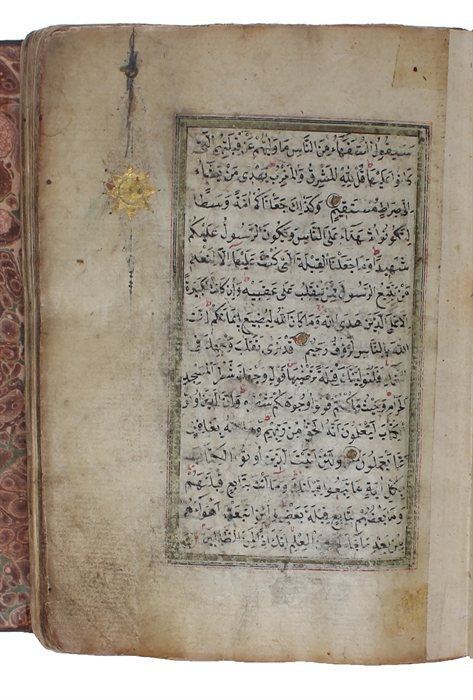 سَيَقُولُ السُّفَهَاءُ مِنَ النَّاسِ مَا وَلّٰيهُمْ عَنْ قِبْلَتِهِمُ الَّتِي
كَانُوا عَلَيْهَا قُلْ لِلّٰهِ الْمَشْرِقُ وَالْمَغْرِبُ يَهْدِي مَنْ يَشَاءُ
اِلٰى صِرَاطٍ مُسْتَقِيمٍ وَكَذٰلِكَ جَعَلْنَاكُمْ اُمَّةً وَسَطًا
لِتَكُونُوا شُهَدَاءَ عَلَى النَّاسِ وَيَكُونَ الرَّسُولُ عَلَيْكُمْ
شَهِيدًا وَمَا جَعَلْنَا الْقِبْلَةَ الَّتِي كُنْتَ عَلَيْهَا اِلَّا لِنَعْلَمَ
مَنْ يَتَّبِعُ الرَّسُولَ مِمَّنْ يَنْقَلِبُ عَلٰى عَقِبَيْهِ وَاِنْ كَانَتْ لَكَبِيرَةً
اِلَّا عَلَى الَّذِينَ هَدَى اللّٰهُ وَمَا كَانَ اللّٰهُ لِيُضِيعَ اِيمَانَكُمْ اِنَّ
اللّٰهَ بِالنَّاسِ لَرَؤُفٌ رَحِيمٌ قَدْ نَرٰى تَقَلُّبَ وَجْهِكَ فِي
السَّمَاءِ فَلَنُوَلِّيَنَّكَ قِبْلَةً تَرْضٰيهَا فَوَلِّ وَجْهَكَ شَطْرَ الْمَسْجِدِ
الْحَرَامِ وَحَيْثُ مَا كُنْتُمْ فَوَلُّوا وُجُوهَكُمْ شَطْرَهُ وَاِنَّ الَّذِينَ اُوتُوا
الْكِتَابَ لَيَعْلَمُونَ اَنَّهُ الْحَقُّ مِنْ رَبِّهِمْ وَمَا اللّٰهُ بِغَافِلٍ
عَمَّا يَعْمَلُونَ وَلَئِنْ اَتَيْتَ الَّذِينَ اُوتُوا الْكِتَابَ
بِكُلِّ اٰيَةٍ مَا تَبِعُوا قِبْلَتَكَ وَمَا اَنْتَ بِتَابِعٍ قِبْلَتَهُمْ
وَمَا بَعْضُهُمْ بِتَابِعٍ قِبْلَةَ بَعْضٍ وَلَئِنِ اتَّبَعْتَ اَهْوَاءَهُمْ
مِنْ بَعْدِ مَا جَاءَكَ الْعِلْمِ اِنَّكَ اِذًا لَمِنَ الظَّالِمِينَ